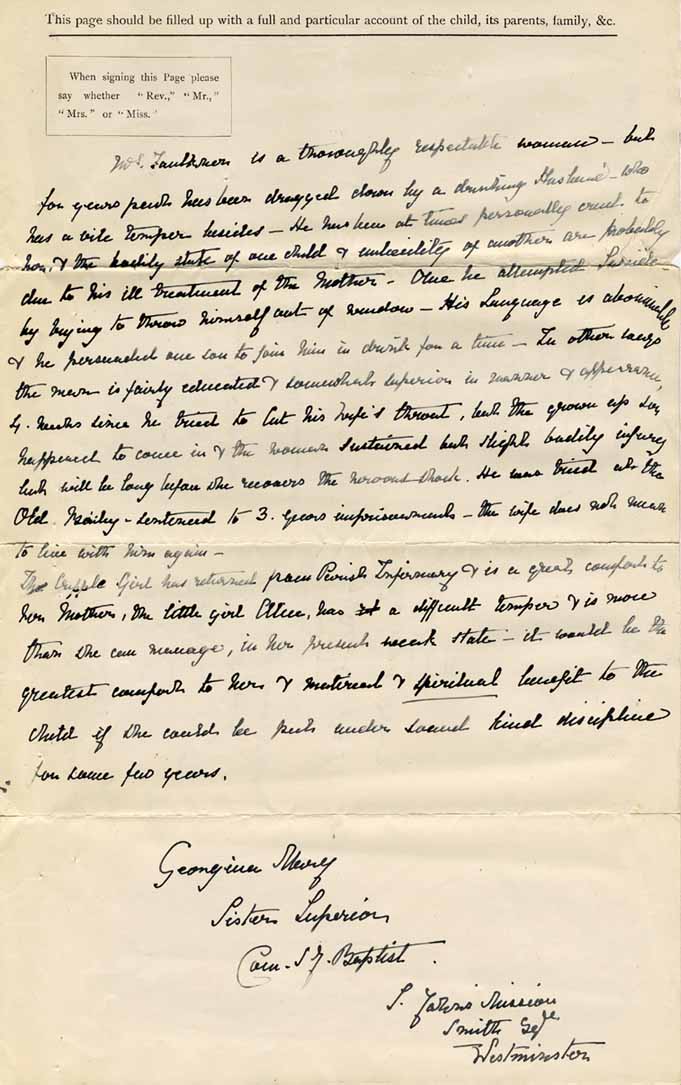 This page should be filled up with a full and particular account of the child, its parents, family, &c.
When signing this Page please
say whether "Rev.," "Mr.,"
"Mrs." or "Miss."
Mrs. Faulkner is a thoroughly respectable woman – but
for years past has been dragged down by a drunking Husband – who
has a vile temper besides – He has been at times personally cruel to
her, & the bodily state of one child & imbecility of another are probably
due to his ill treatment of the Mother – Once he attempted Suicide
by trying to throw himself out of window – His Language is abominable
& he persuaded one son to join him in drink for a time – In other ways
the man is fairly educated & somewhat superior in manner & appearance,
4. weeks since he tried to Cut his wife's throat, but the grown up son
happened to come in & the woman sustained but slight bodily injury
but will be long before she recovers the nervous shock. He was tried at the
Old Bailey – sentenced to 3. years imprisonment – the wife does not mean
to live with him again –
The Cripple Girl has returned from Parish Infirmary & is a great comfort to
her Mother, the little girl has a difficult temper & is more
than she can manage, in her present weak state – it would be the
greatest comfort to her & material & spiritual benefit to the
child if she could be put under sound kind discipline
for some few years.
Georgina Mary
Sister Superior
Com. S J. Baptist.
S. John's Mission
Smith Sqre
Westminster